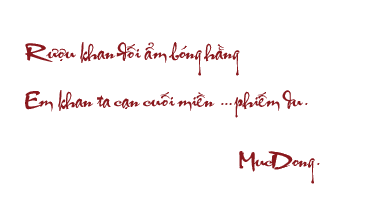 Rượu khan đối ẩm bóng hằng
Em khan ta cạn cuối miền ...phiếm du.
MucDong.